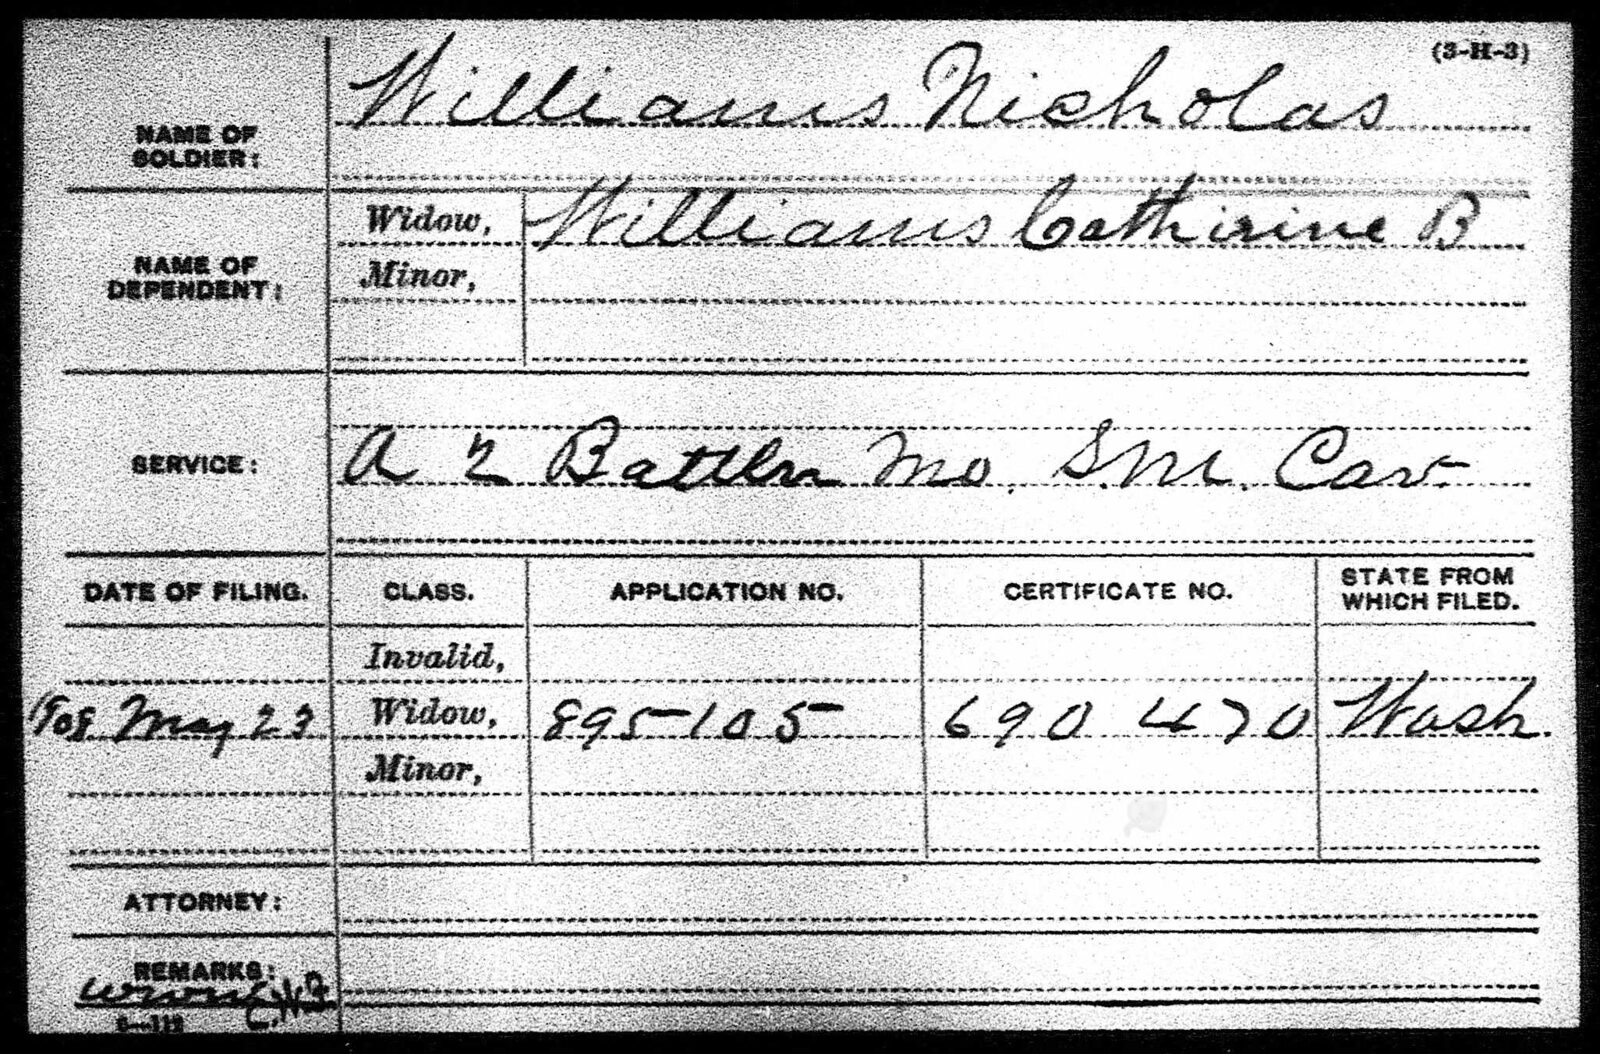 (3-H-3)
NAME OF SOLDIER: Williams Nicholas
NAME OF DEPENDENT: Widow, Williams Catherine B
Minor,
SERVICE: A 2 Battln Mo. S.M. Cav.
DATE OF FILING. CLASS. APPLICATION NO. CERTIFICATE NO. STATE FROM WHICH FILED.
Invalid,
1908 May 23 Widow, 895105 690 470 Wash.
Minor,
ATTORNEY:
REMARKS: